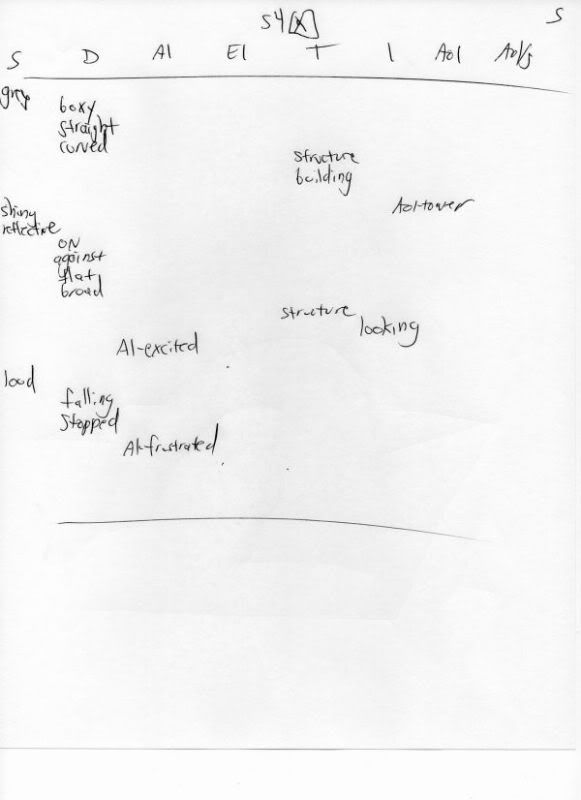 S4 [X]
5
S D AI EI T I Aol Aol/s
grey
boxy
straight
curved
structure
building
Aol-tower
shiny
reflective
ON
against
flat
broad
structure
looking
AI-excited
loud
falling
stopped
AI-frustrated